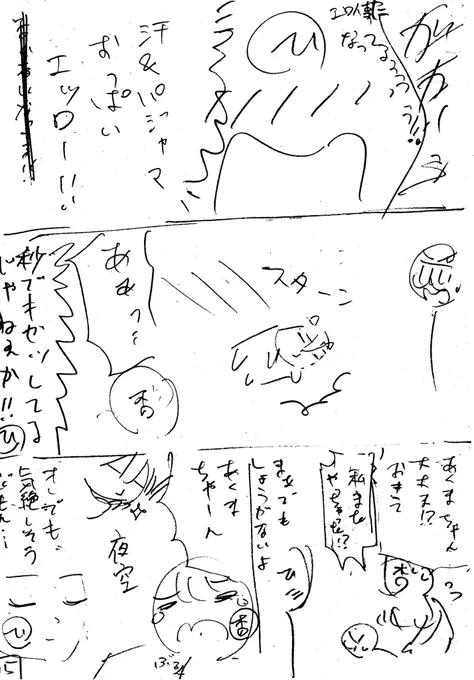 ガバーッ
エロい事に
なってるううう
う!!
ひ
汗&パジャマ
おっぱい
エッロー!!!
スターン
あぁっ…
香
秒でキゼツしてる
じゃねぇか!!
ひ
あくまちゃん
大丈夫!?
おきて
私また
やっちゃった!?
香
までも
しょうがないよ
ひ
あくま
ちゃーん
香
夜空
オレでも
気絶しそう
だもん…
ひ
15